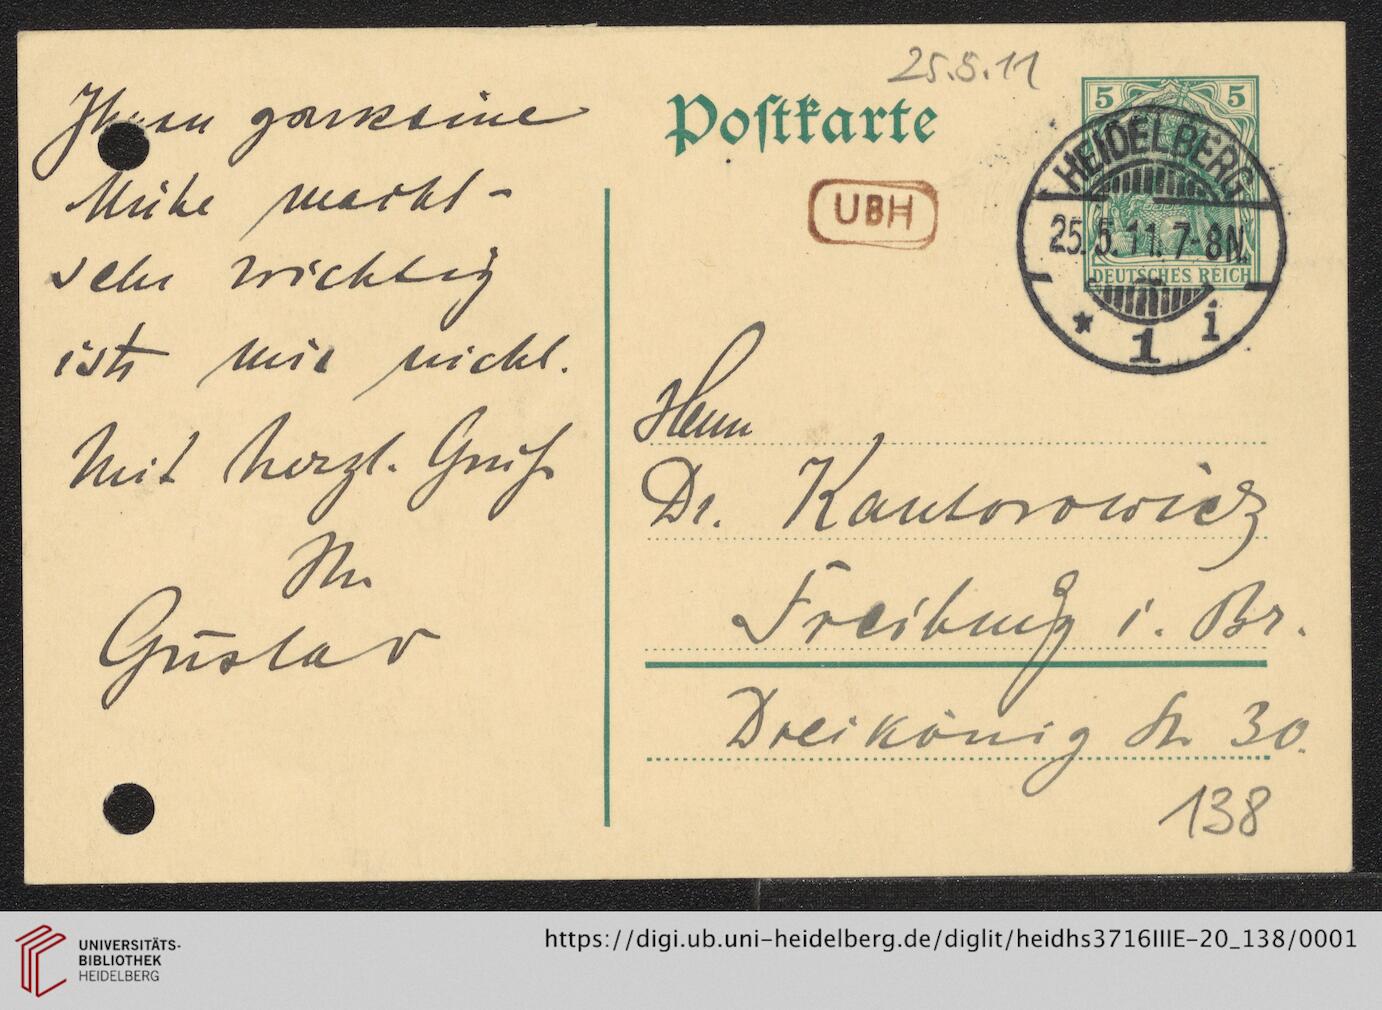 Ihnen garkeine
Mühe macht -
sehr wichtig
ists mir nicht.
Mit herzl. Gruß
Ihr
Gustav
25.5.11
Postkarte
5 5
DEUTSCHES REICH
HEIDELBERG
25.5.11.7-8N.
* 1 i
UBH
Herrn
Dr. Kantorowicz
Freiburg i. Br.
Dreikönig Str 30.
138
UNIVERSITÄTS-
BIBLIOTHEK
HEIDELBERG
https://digi.ub.uni-heidelberg.de/diglit/heidhs3716IIIE-20_138/0001